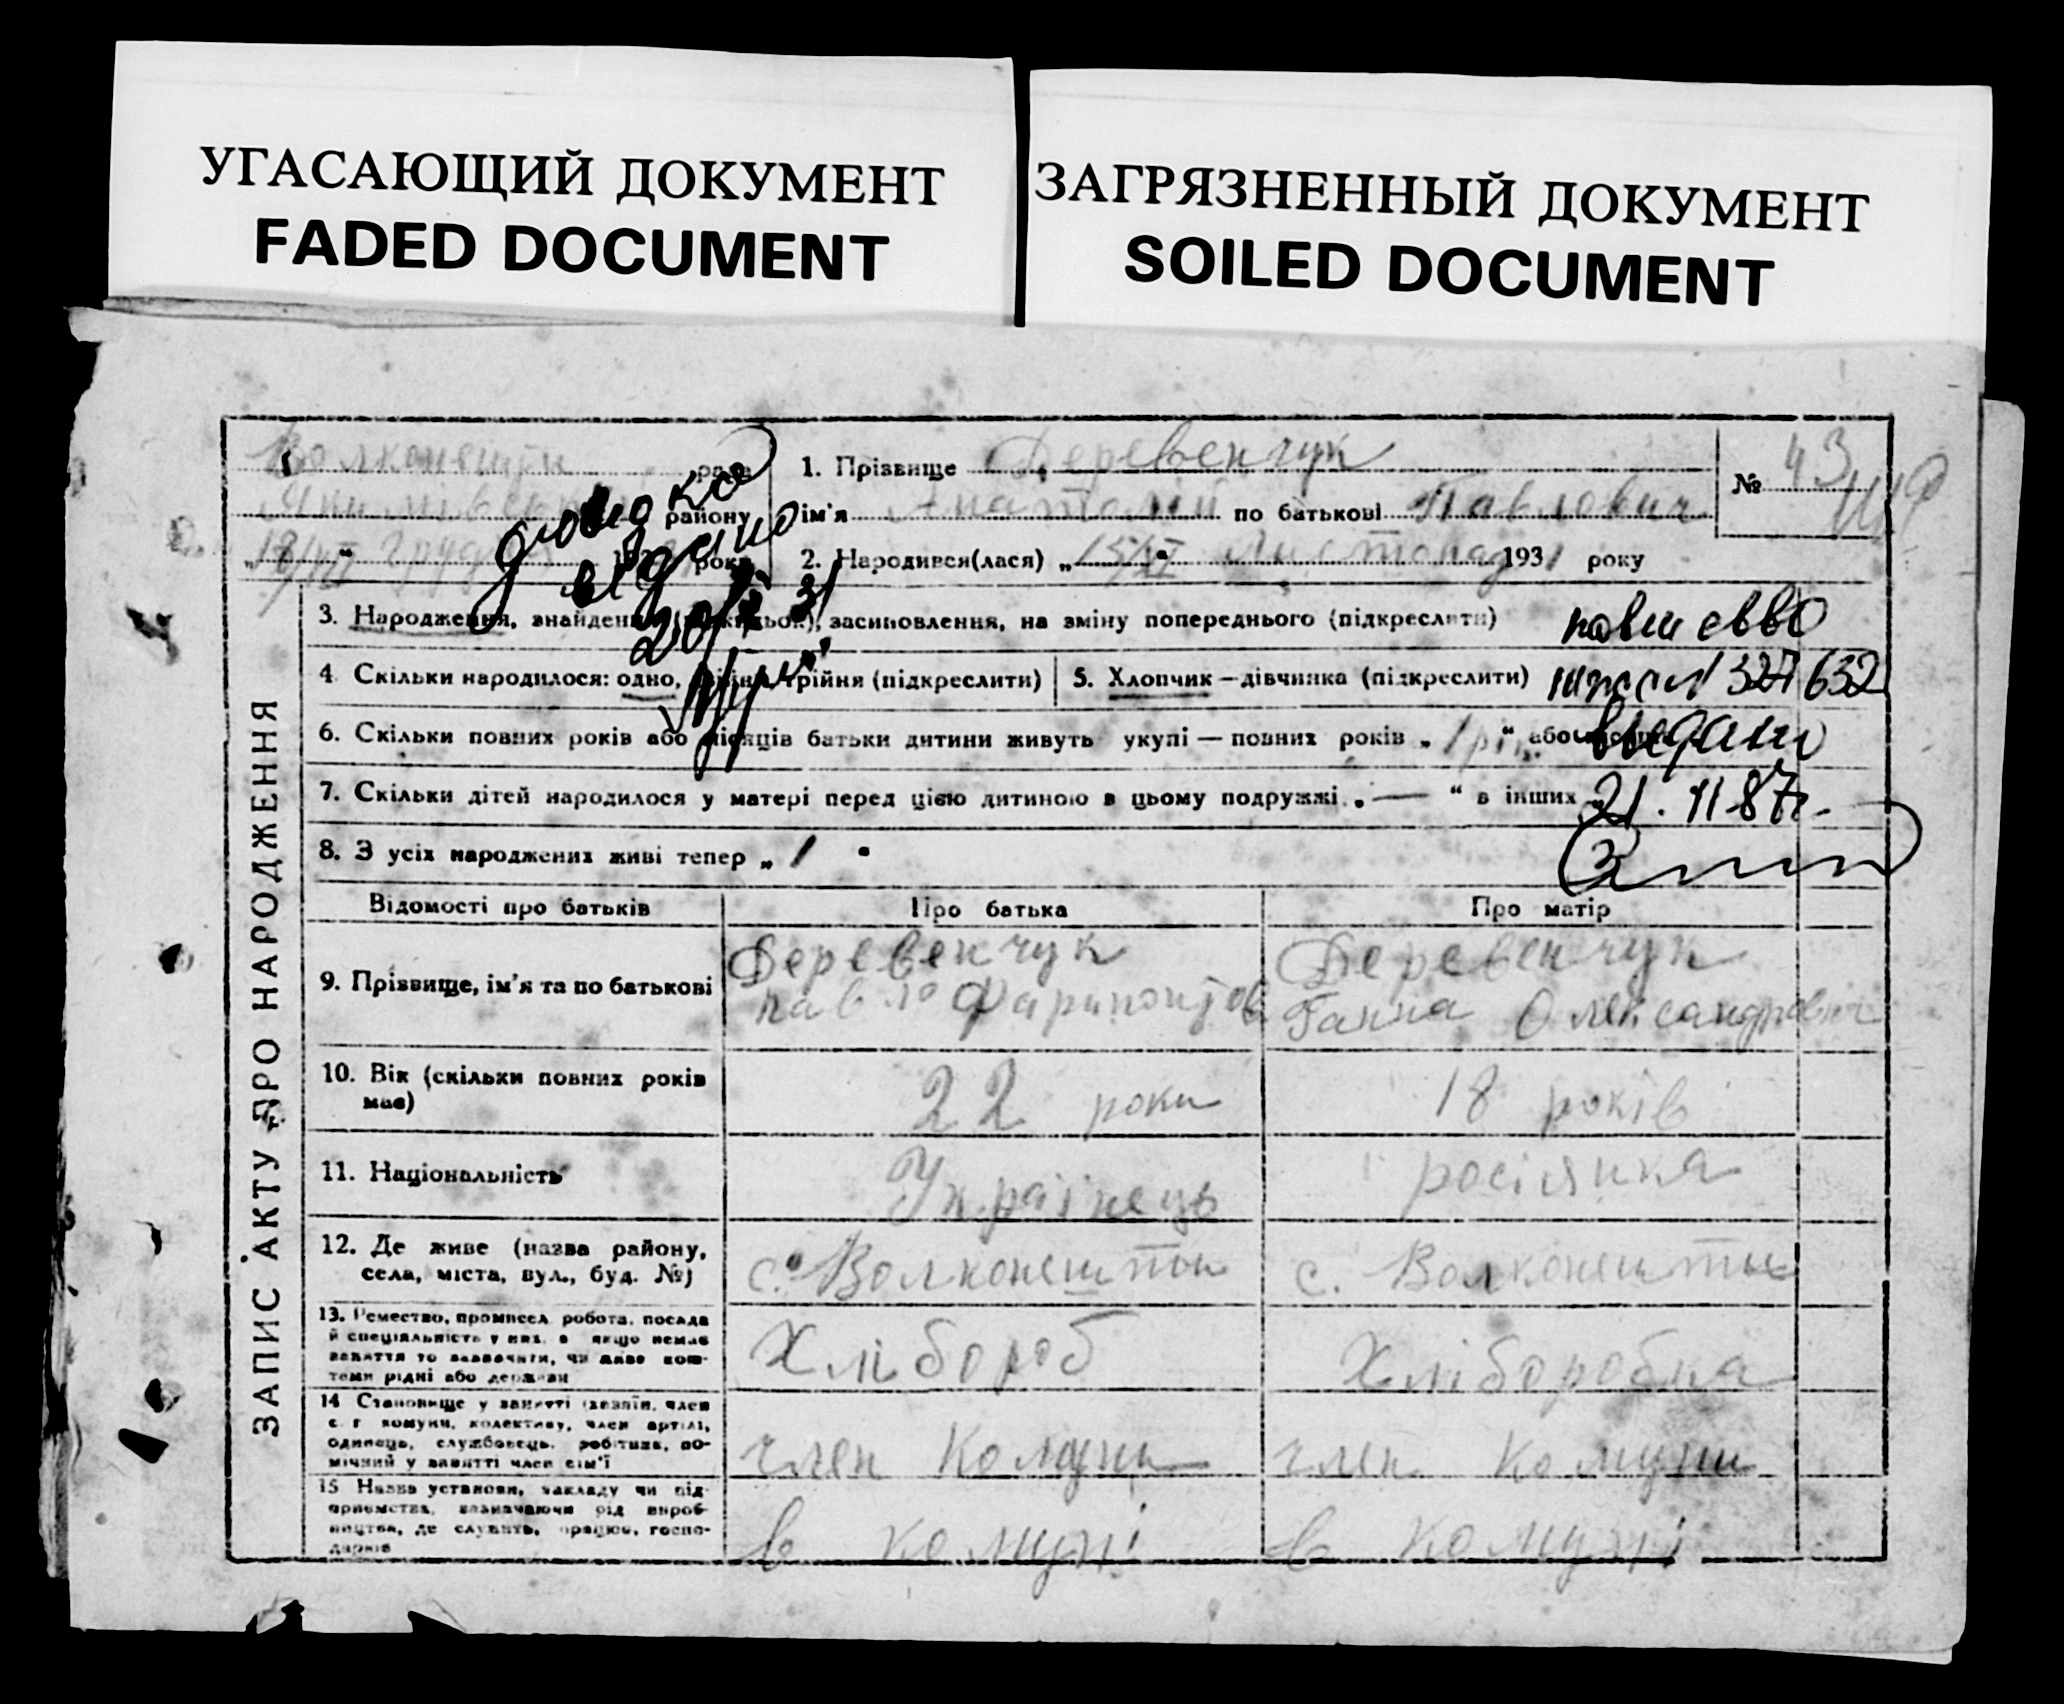 УГАСАЮЩИЙ ДОКУМЕНТ
FADED DOCUMENT
ЗАГРЯЗНЕННЫЙ ДОКУМЕНТ
SOILED DOCUMENT
ЗАПИС АКТУ ПРО НАРОДЖЕННЯ
Волконешти рада
району
року
довідко
видано
1. Прізвище Деревенчук
ім'я Анатолій по батькові Павлович
№ 43
2. Народився(лася) „15/XI“ Листопад 1931 року
3. Народження, знайдення, засиновлення, на зміну попереднього (підкреслити)
4. Скільки народилося: одно, двійня, трійня (підкреслити)
5. Хлопчик — дівчинка (підкреслити)
повт свво
327632
выдано
21.11 87г.
6. Скільки повних років або місяців батьки дитини живуть укупі — повних років „1 рік“ або
7. Скільки дітей народилося у матері перед цією дитиною в цьому подружжі „—“ в інших
8. З усіх народжених живі тепер „1“
Відомості про батьків Про батька Про матір
9. Прізвище, ім'я та по батькові
Деревенчук
Павло
Деревенчук
Ганна Олександровна
10. Вік (скільки повних років має)
22 роки
18 років
11. Національність
Українець
росіянка
12. Де живе (назва району,
села, міста, вул., буд. №)
с. Волконешти
с. Волконешти
13. Ремество, промисел, робота, посада
й спеціяльність у них, а якщо немає
заняття то зазначити, чи живе кош-
тами рідні або держави
Хлібороб
Хліборобка
14 Становище у занятті (хазяїн, член
с. г. комуни, колективу, член артілі,
одинець, службовець, робітник, по-
мічний у занятті член сім'ї
член комуни
член комуни
15 Назва установи, закладу чи під-
приємства, зазначаючи рід вироб-
ництва, де служить, працює, госпо-
дарює
в комуні
в комуні